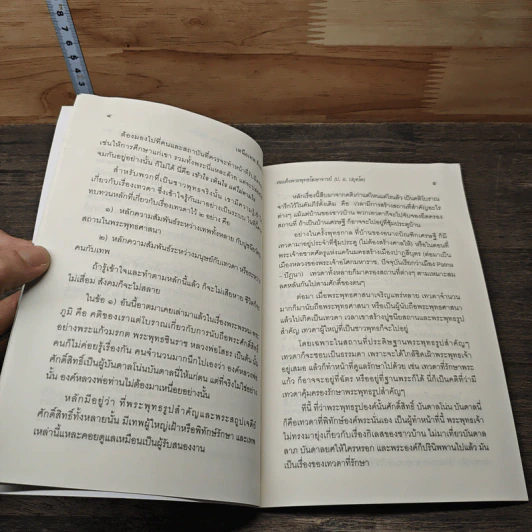 ๔
ต้องมองไปที่คนและสถาบันที่ควรจะทำหน้าที่
เช่นให้การศึกษาแก่เขา รวมทั้งพระนี่แหละด้วย
จมกันอยู่อย่างนั้น ก็ไม่ได้ นี่คือ เข้าใจ เห็นใจ แต่ไม่
สำหรับพวกที่เป็นชาวพุทธจริงนั้น เขามีความรู้
เกี่ยวกับเรื่องเทวดา ซึ่งเข้าใจรู้กันมาอย่างเป็นระบบ
ทบทวนหลักที่เกี่ยวกับเรื่องเทวดาไว้ ๒ อย่าง คือ
๑) หลักความสัมพันธ์ระหว่างเทพทั้งหลาย กับ
สถานในพระพุทธศาสนา
๒) หลักความสัมพันธ์ระหว่างมนุษย์กับเทวดา หรือระหว่าง
คนกับเทพ
ถ้ารู้เข้าใจและทำตามหลักนี้แล้ว ก็จะไม่เสียหาย ชีวิต
ไม่เสื่อม สังคมก็จะไม่สลาย
ในข้อ ๑) อันนี้อาตมาเคยเล่ามาแล้วในเรื่องพระพรหม
ภูมิ คือ คติของเราแต่โบราณเกี่ยวกับการนับถือพระศักดิ์สิทธิ์
อย่างพระแก้วมรกต พระพุทธชินราช หลวงพ่อโสธร เป็นต้น
คนก็ไม่ค่อยรู้เรื่องกัน คนจำนวนมากนึกไปเองว่า องค์หลวงพ่อ
ศักดิ์สิทธิ์เป็นผู้บันดาลโน่นบันดาลนี่ให้แก่ตน แต่ที่จริงไม่ใช่อย่าง
นั้น องค์หลวงพ่อท่านไม่ต้องมาเหนื่อยอย่างนั้น
หลักมีอยู่ว่า ที่พระพุทธรูปสำคัญและพระสถูปเจดีย์
ศักดิ์สิทธิ์ทั้งหลายนั้น มีเทพผู้ใหญ่เฝ้าหรือพิทักษ์รักษา และเทพ
เหล่านี้แหละคอยดูแลเหมือนเป็นผู้รับสนองงาน
สมเด็จพระพุทธโฆษาจารย์ (ป. อ. ปยุตฺโต)
๕
หลักเรื่องนี้สืบมาจากคติเก่าแต่ไหนแต่ไรแล้ว เป็นคติโบราณ
จารึกไว้ในคัมภีร์ดั้งเดิม คือ เวลามีการสร้างสถานที่สำคัญอะไร
ต่างๆ แม้แต่บ้านของชาวบ้าน พวกเทวดาก็จะไปจับจองยึดครอง
สถานที่ ถ้าเป็นบ้านเศรษฐี ก็จะไปอยู่ที่ซุ้มประตูบ้าน
อย่างในครั้งพุทธกาล ที่บ้านของอนาถบิณฑิกเศรษฐี ก็มี
เทวดามาอยู่ประจำที่ซุ้มประตู (ไม่ต้องสร้างศาลให้) หรือในตอนที่
พระเจ้าอชาตศัตรูแห่งแคว้นมคธสร้างเมืองปาฏลีบุตร (ต่อมาเป็น
เมืองหลวงของพระเจ้าอโศกมหาราช, ปัจจุบันเรียกว่าเมือง Patna
– ปัฏนา) เทวดาทั้งหลายก็มาครองสถานที่ต่างๆ ตามเหมาะสม
ลดหลั่นกันไปตามศักดิ์ของตนๆ
ต่อมา เมื่อพระพุทธศาสนาเจริญแพร่หลาย เทวดาจำนวน
มากก็มานับถือพระพุทธศาสนา หรือเป็นผู้นับถือพระพุทธศาสนา
แล้วไปเกิดเป็นเทวดา เวลาเขาสร้างปูชนียสถานและพระพุทธรูป
สำคัญ เทวดาผู้ใหญ่ที่เป็นชาวพุทธก็จะไปอยู่
โดยเฉพาะในสถานที่ประดิษฐานพระพุทธรูปสำคัญๆ
เทวดาก็จะชอบเป็นธรรมดา เพราะจะได้ใกล้ชิดเฝ้าพระพุทธเจ้า
อยู่เสมอ แล้วก็ทำหน้าที่ดูแลรักษาไปด้วย เช่น เทวดาที่พระพระ
แก้ว ก็อาจจะอยู่ที่ฉัตร หรืออยู่ที่ฐานพระก็ได้ นี่ก็เป็นคติที่ว่ามี
เทวดาคุ้มครองรักษาพระพุทธรูปสำคัญๆ
ทีนี้ ที่ว่าพระพุทธรูปองค์นั้นศักดิ์สิทธิ์ บันดาลโน่น บันดาลนี่
ก็คือเทวดาที่พิทักษ์องค์พระนั่นเอง เป็นผู้ทำหน้าที่นี้ พระพุทธเจ้า
ไม่ทรงมายุ่งเกี่ยวกับเรื่องกิเลสของชาวบ้าน ไม่มาเที่ยวบันดาล
ลาภ บันดาลยศให้ใครหรอก และพระองค์ก็ปรินิพพานไปแล้ว มัน
เป็นเรื่องของเทวดาที่รักษา